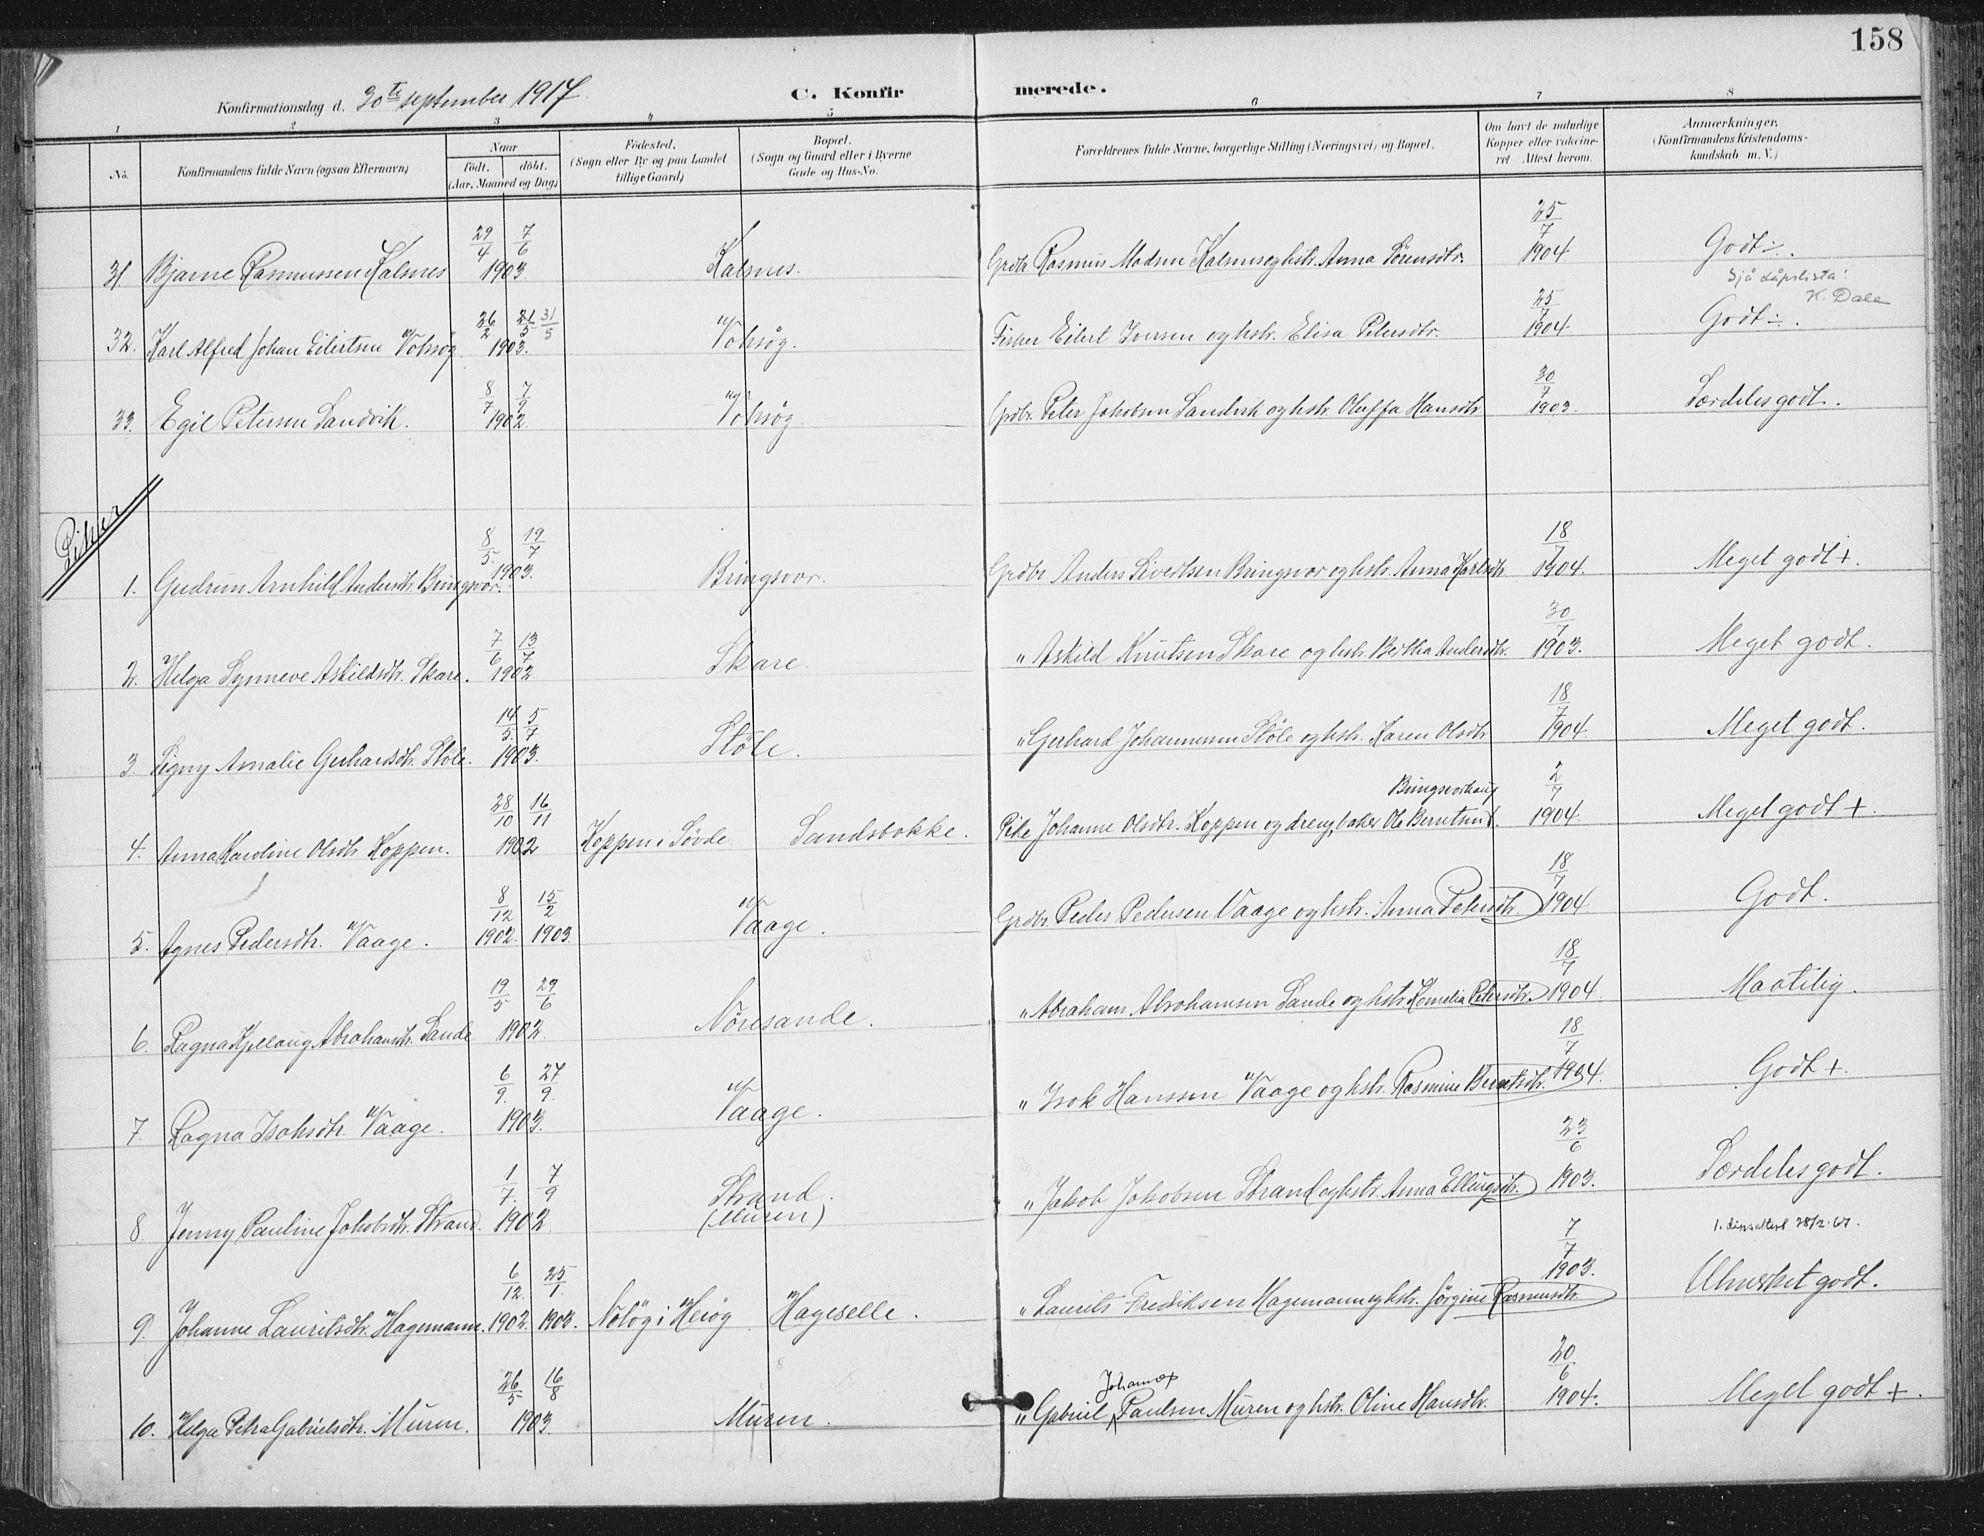 158
Konfirmationsdag d. 30te september 1917.
C. Konfirmerede.
1 2 3 4 5 6 7 8
No.
Konfirmandens fulde Navn (ogsaa Efternavn)
Naar
födt. döbt.
(Aar, Maaned og Dag)
Födested.
(Sogn eller By og paa Landet
tillige Gaard)
Bopæl.
(Sogn og Gaard eller i Byerne
Gade og Hus-No.
Forældrenes fulde Navne, borgerlige Stilling (Næringsvei) og Bopæl.
Om havt de naturlige
Kopper eller vakcine-
ret. Attest herom.
Anmærkninger.
(Konfirmandens Kristendoms-
kundskab m. V.)
31. Bjarne Rasmussen Kalmes 29/4 7/6 1903. Kalmes. Grdbr Rasmus Madsen Kalmes og hstr. Anna Sörensdtr. 25/7 1904. Godt ÷.
Sjå dåpslista!
K. Dale
32. Karl Alfred Johan Eilertsen Voksøy 26/2 21/5 31/5 1903. Voksøy. Fisker Eilert Iversen og hstr. Elisa Petersdtr. 25/7 1904. Godt ÷.
33. Egil Petersen Sandvik. 8/7 7/9 1902. Voksøy. Grdbr. Peter Jakobsen Sandvik og hstr. Oluffa Hansdtr. 30/7 1903. Særdeles godt.
Piker
1. Gudrun Arnhild Andersdtr. Bringsvor. 8/5 19/7 1903. Bringsvor. Grdbr Anders Sivertsen Bringsvor og hstr. Anna Karlsdtr 18/7 1904. Meget godt +.
2. Helga Synneve Askildsdtr. Skare. 7/6 13/7 1902. Skare. " Askild Knutsen Skare og hstr. Bertha Andersdtr. 30/7 1903. Meget godt.
3 Signy Amalie Gerhardsdtr. Støle. 14/5. 5/7 1903. Støle. " Gerhard Johannessen Støle og hstr. Karen Olsdtr 18/7 1904. Meget godt.
Bringsvorhaug
4. Anna Karoline Olsdtr Koppen. 28/10 16/11 1902 Koppen i Søvde. Sandsbakke. Pike Johanne Olsdtr. Koppen og dreng, baker Ole Berntsen. 2/7 1904. Meget godt +
5. Agnes Pedersdtr. Vaage. 8/12 1902. 15/2 1903 Vaage. Grdbr Peder Pedersen Vaage og hstr. Anna Petersdtr. 18/7 1904. Godt.
6. Ragna Kjellaug Abrahamsdtr. Sande 19/5 29/6 1902 Nöresande. " Abraham Abrahamsen Sande og hstr. Kornelia Petersdtr. 18/7 1904 Maatelig.
7. Ragna Isaksdtr. Vaage. 6/9. 27/9. 1903. Vaage. " Isak Hanssen Vaage og hstr. Rasmine Berntsdtr. 18/7 1904. Godt +.
8. Jenny Pauline Jakobsdtr. Strand. 1/7. 7/9 1902. Strand. (Muren) " Jakob Jakobsen Strand og hstr. Anna Ellingsdtr. 23/6 1903. Særdeles godt.
1. dåpsattest 28/2-67.
9. Johanne Lauritsdtr. Hagemann. 6/12. 1902. 25/1. 1903. i Herøy Hageselle. " Laurits Fredriksen Hagemann og hstr. Jørgine Rasmusdtr. 7/7 1903. Udmerket godt.
Johan
10. Helga Petra Gabrielsdtr. Muren. 26/5 16/8 1903. Muren. " Gabriel Paulsen Muren og hstr. Oline Hansdtr. 20/6 1904. Meget godt +.